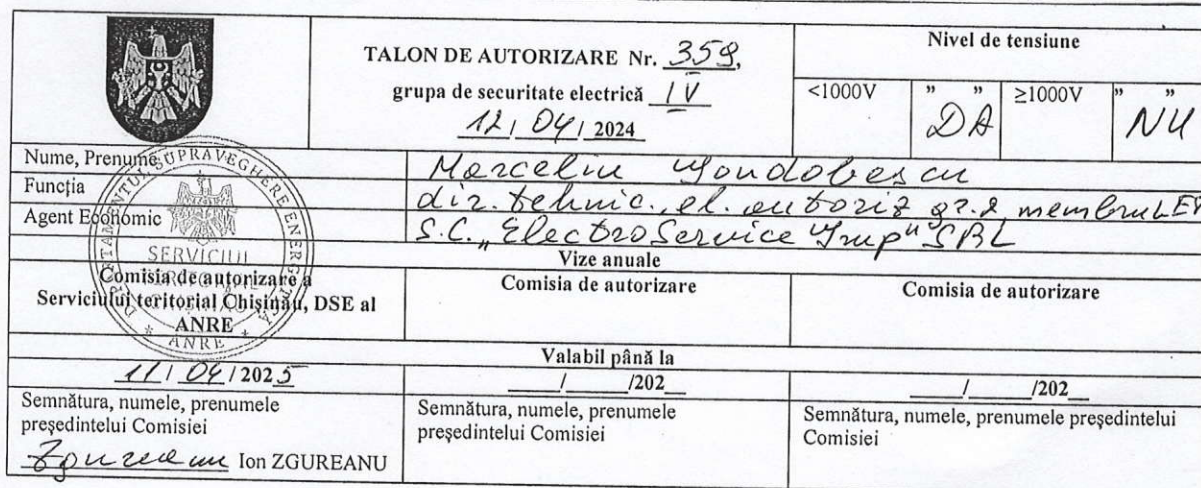 TALON DE AUTORIZARE Nr. 359,
grupa de securitate electrică IV
12 / 04 / 2024
Nivel de tensiune
<1000V " DA " ≥1000V " NU "
Nume, Prenume Marcelin
Funcția dir. tehnic. el. autoriz gr. 2, membru LEP
Agent Economic S.C. „ElectroService Grup" SRL
Vize anuale
Comisia de autorizare a
Serviciului teritorial Chișinău, DSE al
ANRE
Comisia de autorizare
Comisia de autorizare
Valabil până la
11 / 04 / 2025
__/__/202_
__/__/202_
Semnătura, numele, prenumele
președintelui Comisiei
Zgureanu Ion ZGUREANU
Semnătura, numele, prenumele
președintelui Comisiei
Semnătura, numele, prenumele președintelui
Comisiei
SUPRAVEGHERE ENERGETICĂ
SERVICIUL
TERITORIAL
CHIȘINĂU
* ANRE *